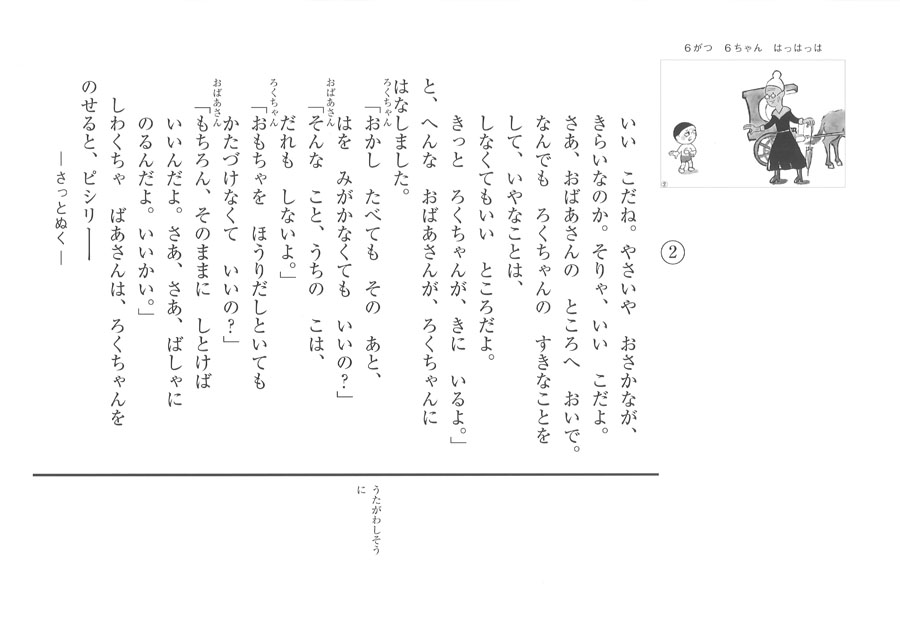 6がつ 6ちゃん はっはっは
②
いい こだね。やさいや おさかなが、
きらいなのか。そりゃ、いい こだよ。
さあ、おばあさんの ところへ おいで。
なんでも ろくちゃんの すきなことを
して、いやなことは、
しなくてもいい ところだよ。
きっと ろくちゃんが、きに いるよ。」
と、へんな おばあさんが、ろくちゃんに
はなしました。
ろくちゃん
「おかし たべても その あと、
はを みがかなくても いいの?」
おばあさん
「そんな こと、うちの こは、
だれも しないよ。」
ろくちゃん
「おもちゃを ほうりだしといても
かたづけなくて いいの?」
おばあさん
「もちろん、そのままに しとけば
いいんだよ。さあ、さあ、ばしゃに
のるんだよ。いいかい。」
しわくちゃ ばあさんは、ろくちゃんを
のせると、ピシリ――
―さっとぬく―
うたがわしそう
に
②